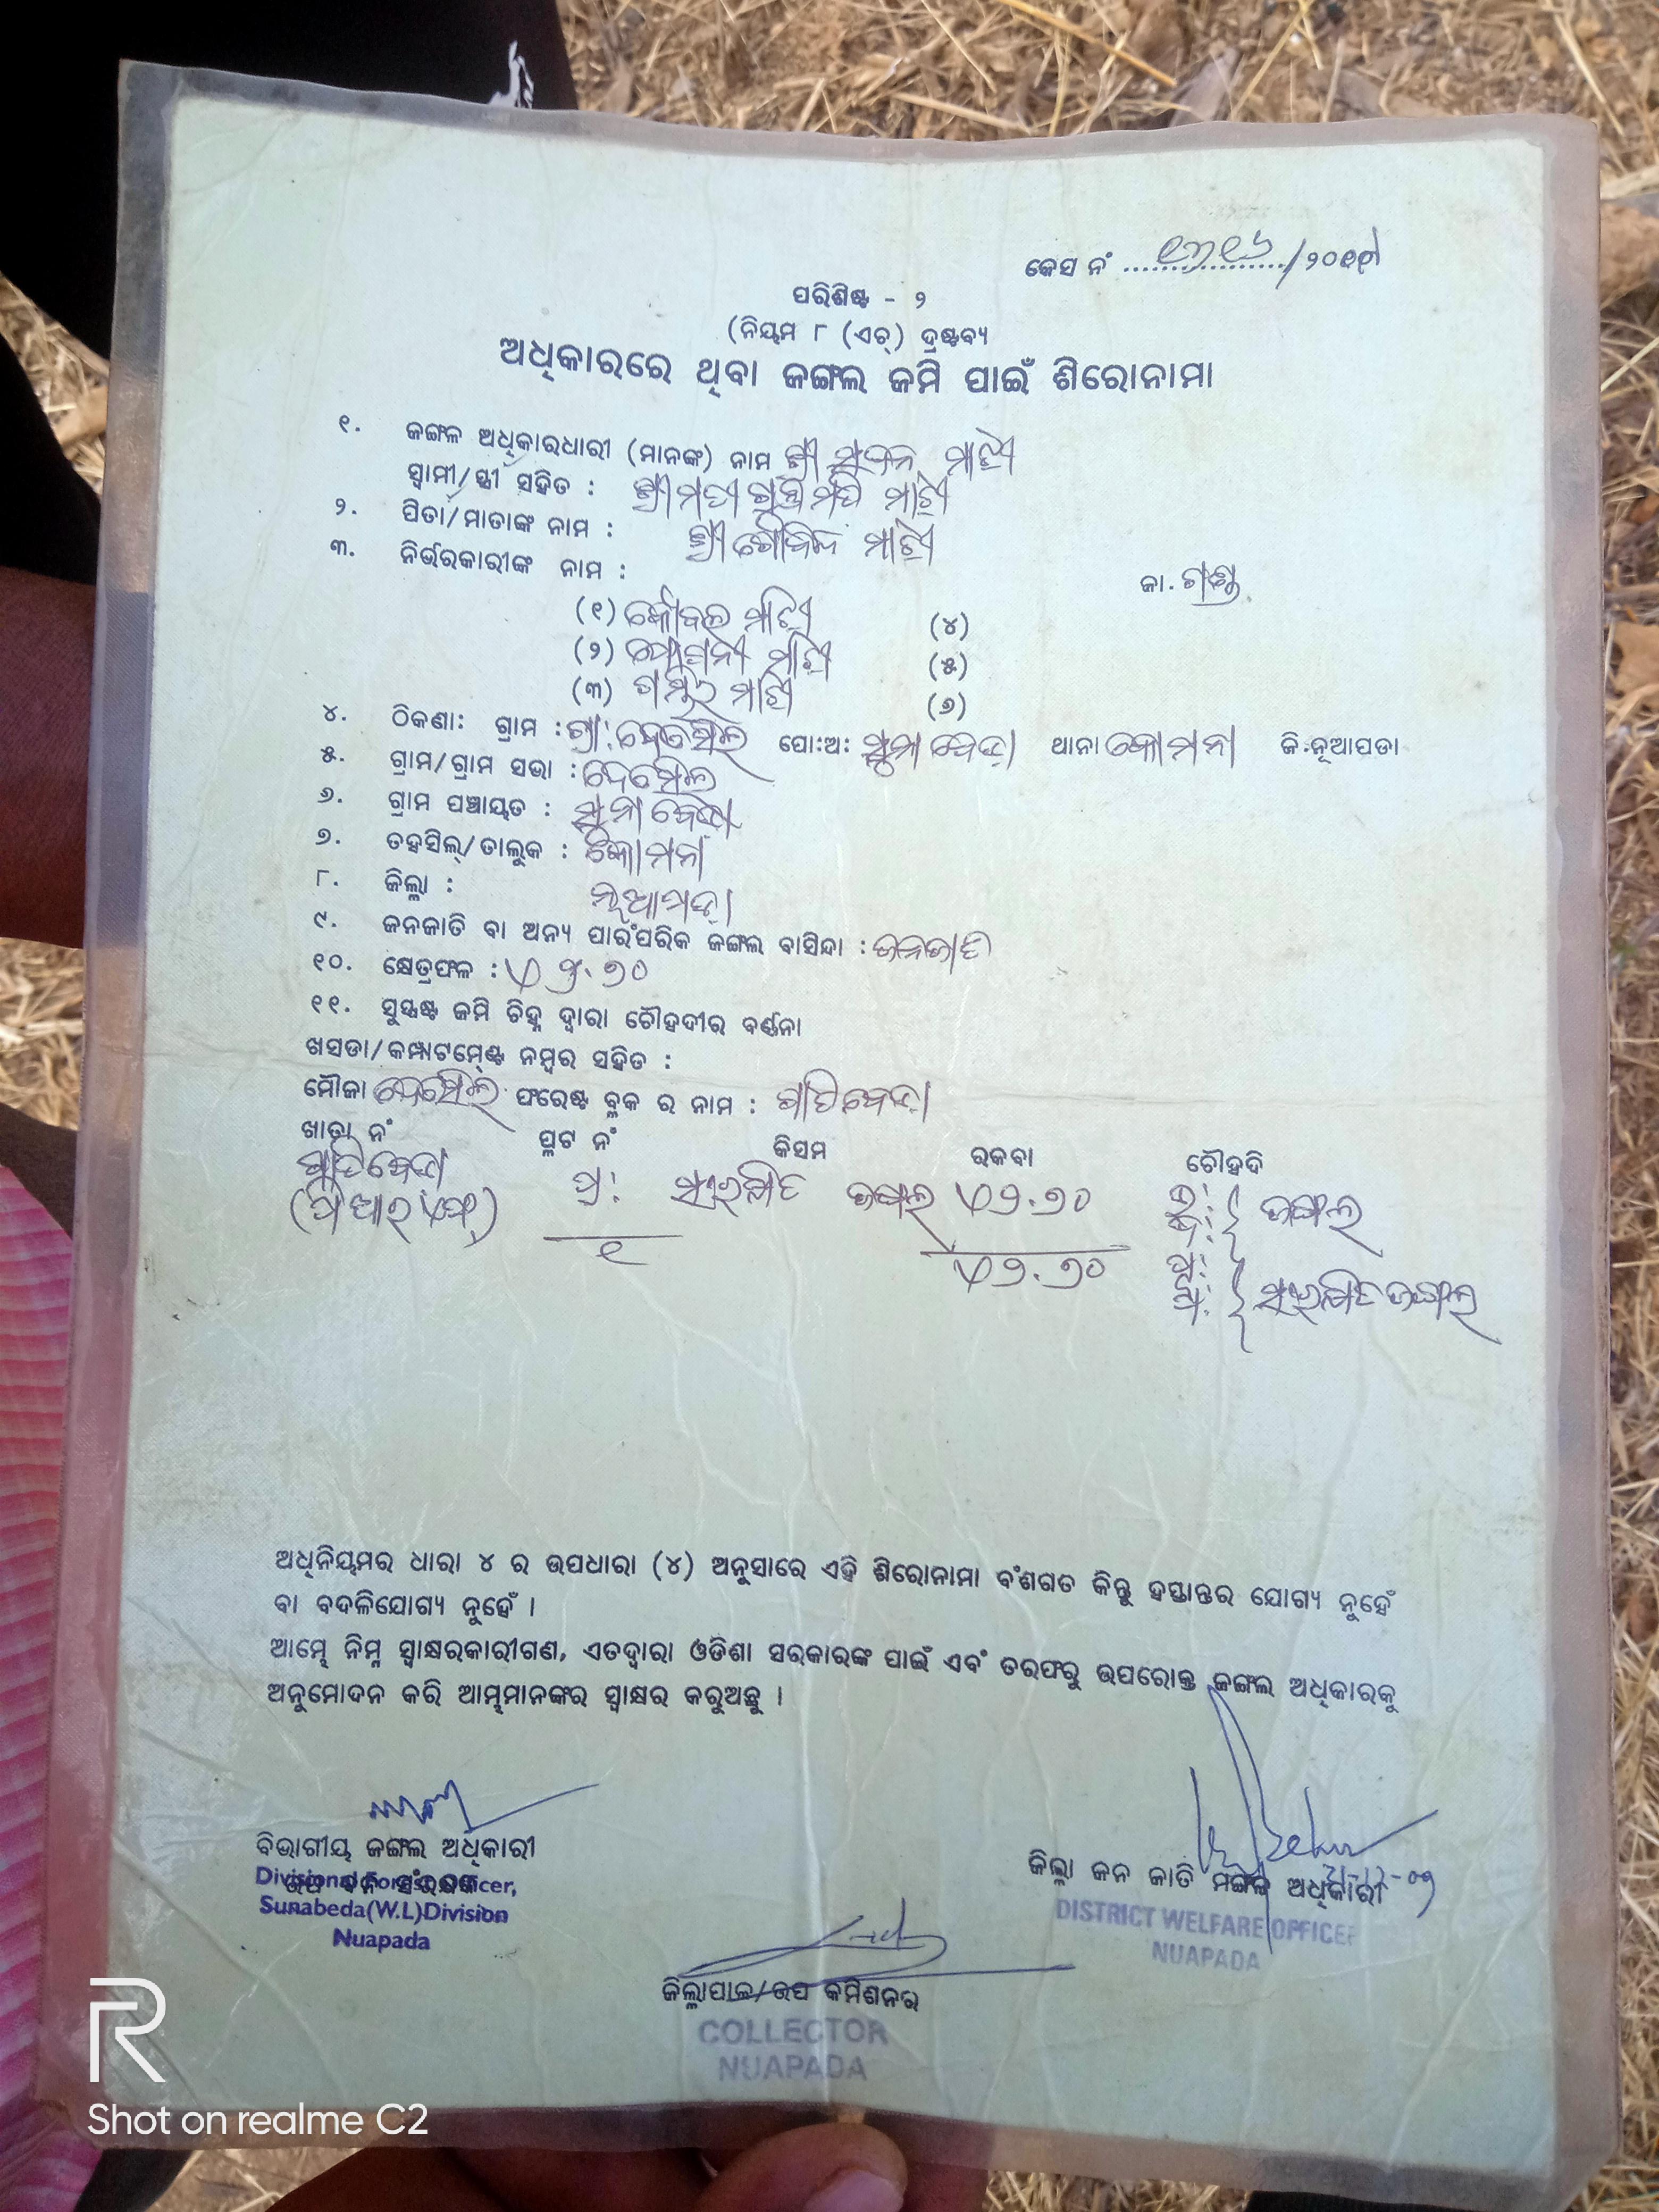 କେସ ନଂ ୧୩୧୬/୨୦୧୧
ପରିଶିଷ୍ଟ - ୨
(ନିୟମ ୮ (ଏଚ୍) ଦ୍ରଷ୍ଟବ୍ୟ
ଅଧିକାରରେ ଥିବା ଜଙ୍ଗଲ ଜମି ପାଇଁ ଶିରୋନାମା
୧. ଜଙ୍ଗଲ ଅଧିକାରଧାରୀ (ମାନଙ୍କ) ନାମ ଶ୍ରୀ ମାଝୀ
ସ୍ୱାମୀ/ସ୍ତ୍ରୀ ସହିତ : ଶ୍ରୀମତୀ ମାଝୀ
୨. ପିତା/ମାତାଙ୍କ ନାମ : ଶ୍ରୀ ଗୋବିନ୍ଦ ମାଝୀ
୩. ନିର୍ଭରକାରୀଙ୍କ ନାମ :
ଜା. ଗଣ୍ଡ
(୧) ମାଝୀ (୪)
(୨) ମାଝୀ (୫)
(୩) ମାଝୀ (୬)
୪. ଠିକଣା: ଗ୍ରାମ : ଗ୍ରା: ପୋ:ଅ: ସୁନାବେଡ଼ା ଥାନା କୋମନା ଜି.ନୂଆପଡା
୫. ଗ୍ରାମ/ଗ୍ରାମ ସଭା :
୬. ଗ୍ରାମ ପଞ୍ଚାୟତ : ସୁନାବେଡ଼ା
୭. ତହସିଲ୍/ତାଲୁକ : କୋମନା
୮. ଜିଲ୍ଲା : ନୂଆପଡ଼ା
୯. ଜନଜାତି ବା ଅନ୍ୟ ପାରଂପରିକ ଜଙ୍ଗଲ ବାସିନ୍ଦା : ଜନଜାତି
୧୦. କ୍ଷେତ୍ରଫଳ : ଏ ୨.୭୦
୧୧. ସୁସ୍ପଷ୍ଟ ଜମି ଚିହ୍ନ ଦ୍ୱାରା ଚୌହଦୀର ବର୍ଣ୍ଣନା
ଖସଡା/କମ୍ପାଟମେଣ୍ଟ ନମ୍ବର ସହିତ :
ମୌଜା ଫରେଷ୍ଟ ବ୍ଲକ ର ନାମ :
ଖାତା ନଂ ପ୍ଲଟ ନଂ କିସମ ରକବା ଚୌହଦି
(ପି ଆର ଏଫ୍) ପ୍ର: ସଂରକ୍ଷିତ ଜଙ୍ଗଲ ଏ ୨.୭୦ ଉ: ଦ: ଜଙ୍ଗଲ
୧ ଏ ୨.୭୦ ପୂ: ପ: ସଂରକ୍ଷିତ ଜଙ୍ଗଲ
ଅଧିନିୟମର ଧାରା ୪ ର ଉପଧାରା (୪) ଅନୁସାରେ ଏହି ଶିରୋନାମା ବଂଶଗତ କିନ୍ତୁ ହସ୍ତାନ୍ତର ଯୋଗ୍ୟ ନୁହେଁ
ବା ବଦଳିଯୋଗ୍ୟ ନୁହେଁ ।
ଆମ୍ଭେ ନିମ୍ନ ସ୍ୱାକ୍ଷରକାରୀଗଣ, ଏତଦ୍ୱାରା ଓଡିଶା ସରକାରଙ୍କ ପାଇଁ ଏବଂ ତରଫରୁ ଉପରୋକ୍ତ ଜଙ୍ଗଲ ଅଧିକାରକୁ
ଅନୁମୋଦନ କରି ଆମ୍ଭମାନଙ୍କର ସ୍ୱାକ୍ଷର କରୁଅଛୁ ।
ବିଭାଗୀୟ ଜଙ୍ଗଲ ଅଧିକାରୀ
ଉପ ବନ ସଂରକ୍ଷକ
Divisional Forest Officer,
Sunabeda(W.L)Division
Nuapada
ଜିଲ୍ଲା ଜନ ଜାତି ମଙ୍ଗଳ ଅଧିକାରୀ
DISTRICT WELFARE OFFICER
NUAPADA
ଜିଲ୍ଲାପାଳ/ଉପ କମିଶନର
COLLECTOR
NUAPADA
Shot on realme C2